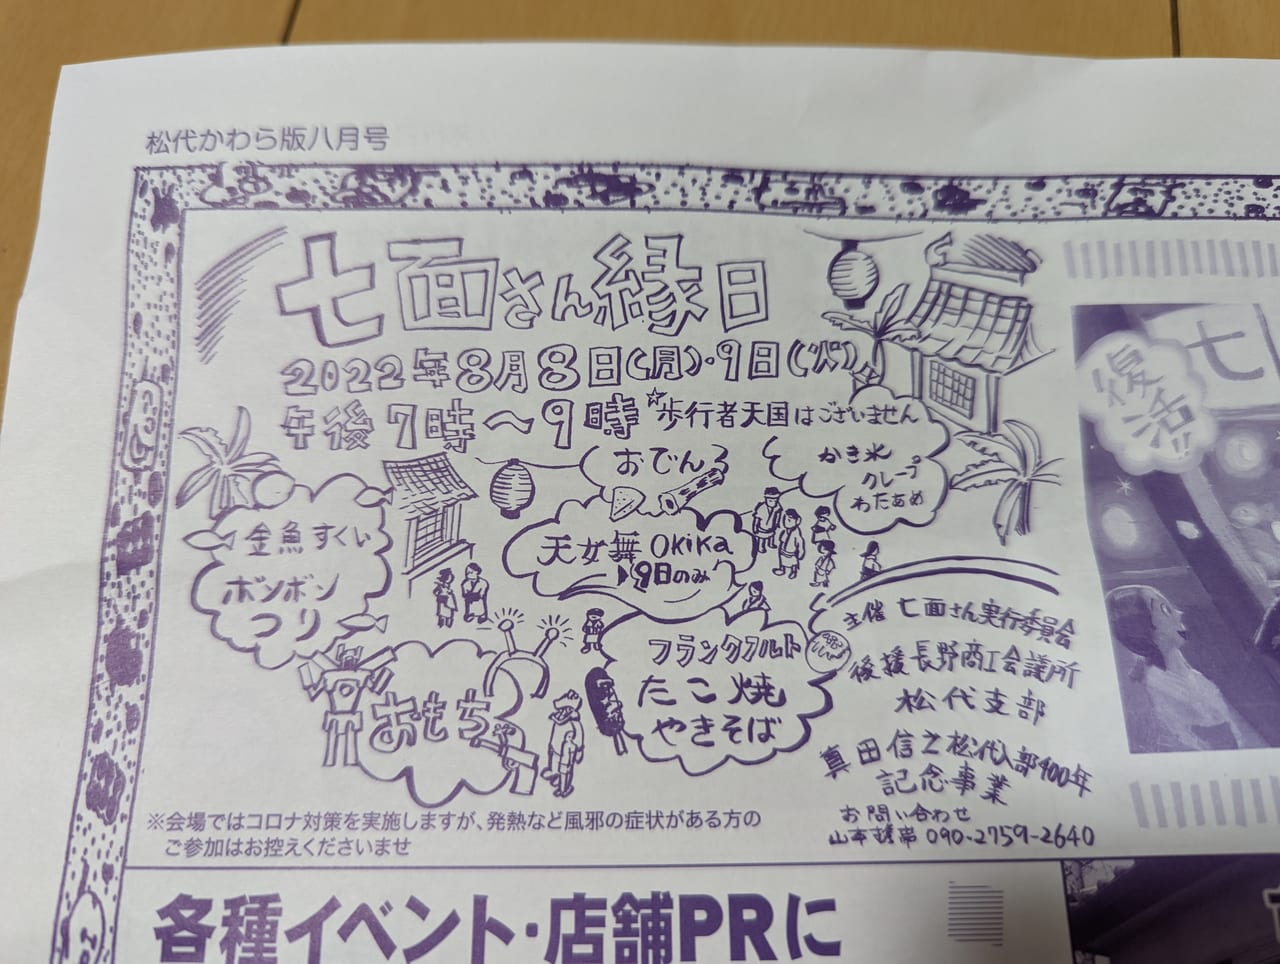 松代かわら版八月号
七面さん縁日
2022年8月8日(月)・9日(火)
午後7時〜9時 ☆歩行者天国はございません
おでん
かき氷
クレープ
わたあめ
金魚すくい
ボンボン
つり
天女舞OKiKa
9日のみ
おもちゃ
フランクフルト
たこ焼
やきそば
主催 七面さん実行委員会
後援 長野商工会議所
松代支部
真田信之松代入部400年
記念事業
お問い合わせ
山本携帯 090-2759-2640
※会場ではコロナ対策を実施しますが、発熱など風邪の症状がある方の
ご参加はお控えくださいませ
復活!!
七
各種イベント・店舗PRに